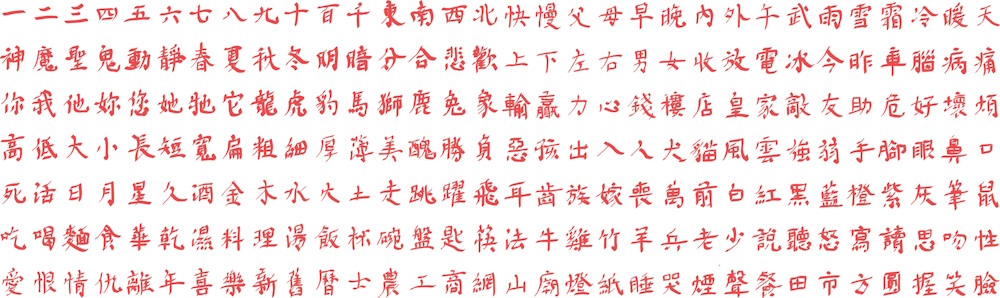 一二三四五六七八九十百千東南西北快慢父母早晚內外午武雨雪霜冷暖天
神魔聖鬼動靜春夏秋冬明暗分合悲歡上下左右男女收放電冰今昨車腦病痛
你我他妳您她牠它龍虎豹馬獅鹿兔象輸贏力心錢樓店皇家敵友助危好壞煩
高低大小長短寬扁粗細厚薄美醜勝負惡孩出入人犬貓風雲強弱手腳眼鼻口
死活日月星久酒金木水火土走跳躍飛耳齒族嫁喪萬前白紅黑藍橙紫灰筆鼠
吃喝麵食華乾濕料理湯飯杯碗盤匙筷法牛雞竹羊兵老少說聽怒寫讀思吻性
愛恨情仇離年喜樂新舊曆士農工商網山廟燈紙睡哭煙聲餐田市方圓握笑臉